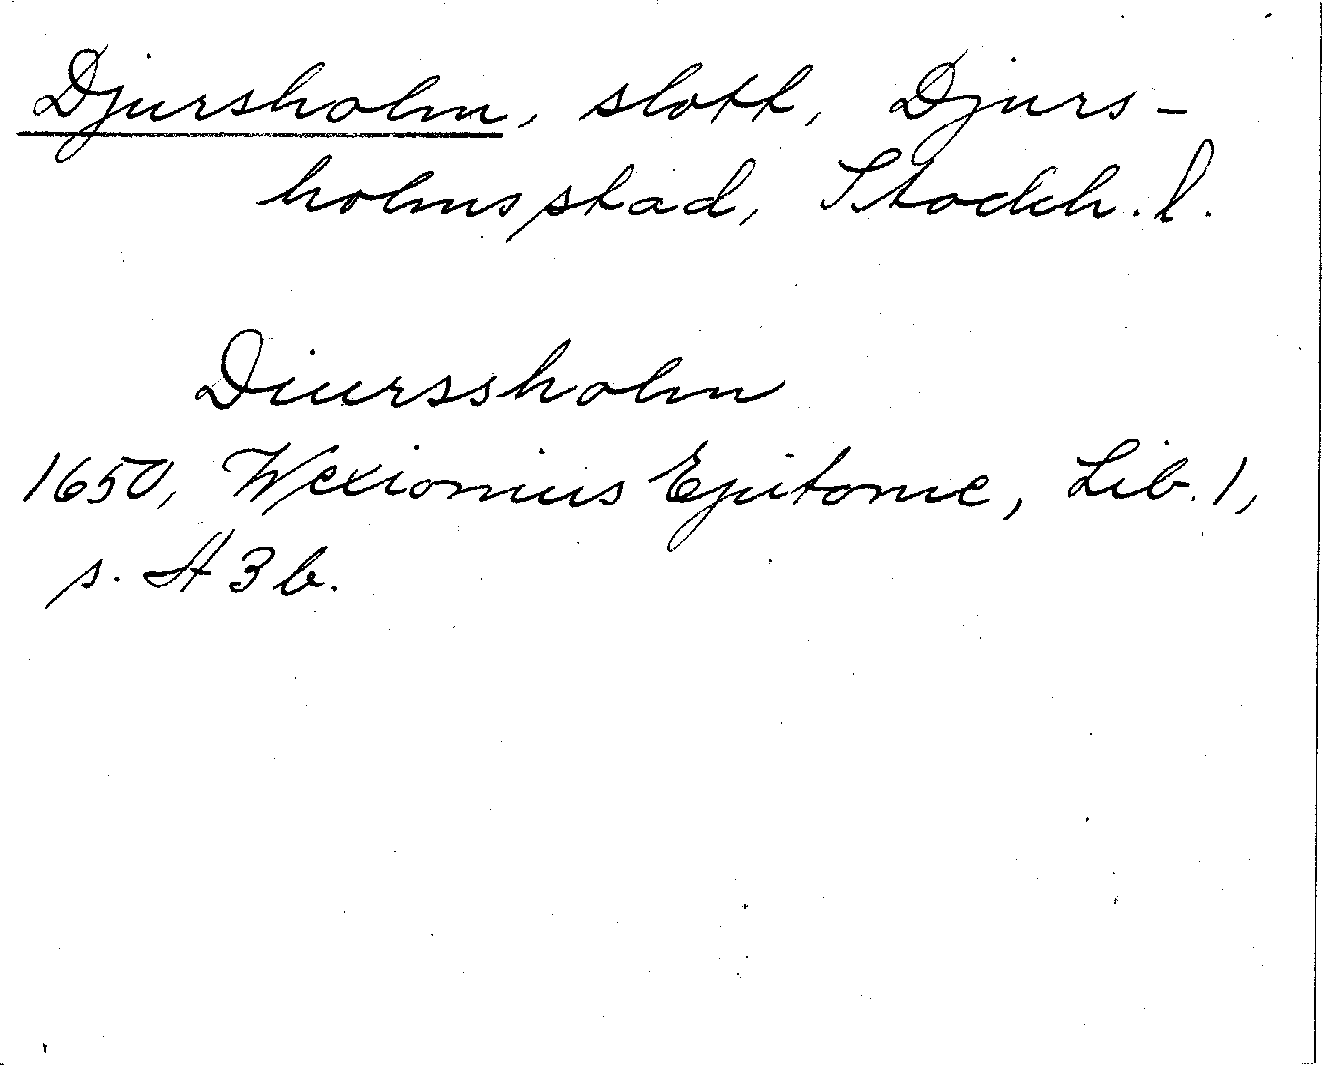 Djursholm, slott, Djurs-
holms stad, Stockh. l.
Diurssholm
1650, Wexionius Epitome, Lib. 1,
s. H 3 b.